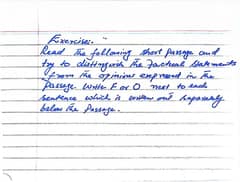 Exercise:
Read the following short passage and
try to distinguish the factual statements
from the opinions expressed in the
Passage. Write F or O next to each
sentence which is written out separately
below the Passage.